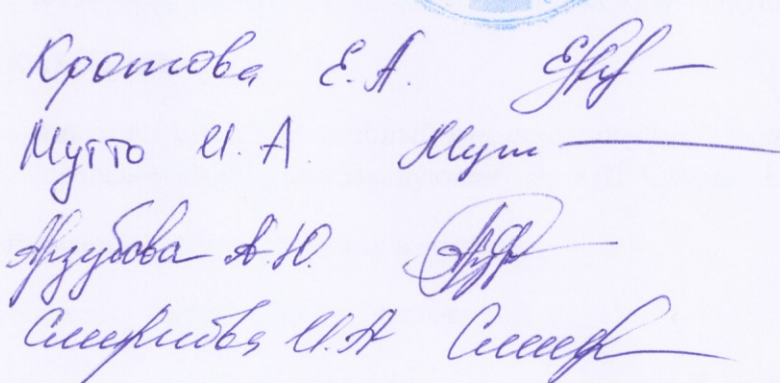 Кротова Е.А.
Мутто И.А.
Арзубова А.Ю.
Смирнова И.А